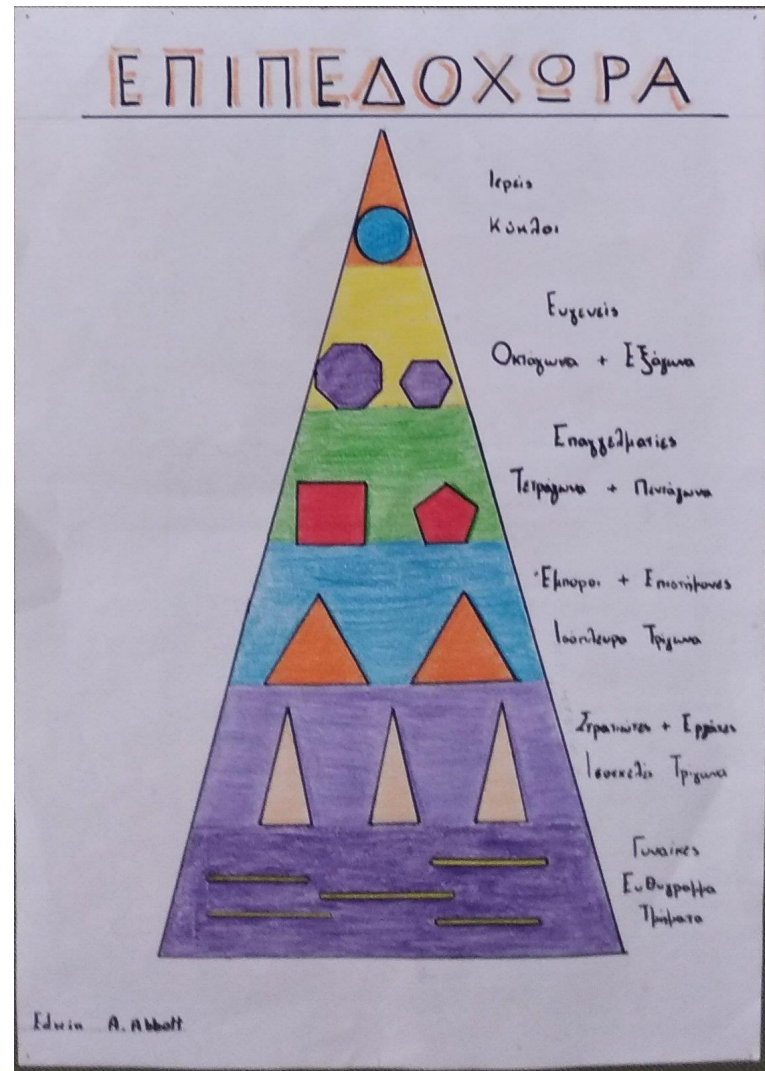 ΕΠΙΠΕΔΟΧΩΡΑ
Ιερείς
Κύκλοι
Ευγενείς
Οκτάγωνα + Εξάγωνα
Επαγγελματίες
Τετράγωνα + Πεντάγωνα
Έμποροι + Επιστήμονες
Ισόπλευρα Τρίγωνα
Στρατιώτες + Εργάτες
Ισοσκελή Τρίγωνα
Γυναίκες
Ευθύγραμμα
Τμήματα
Edwin A. Abbott